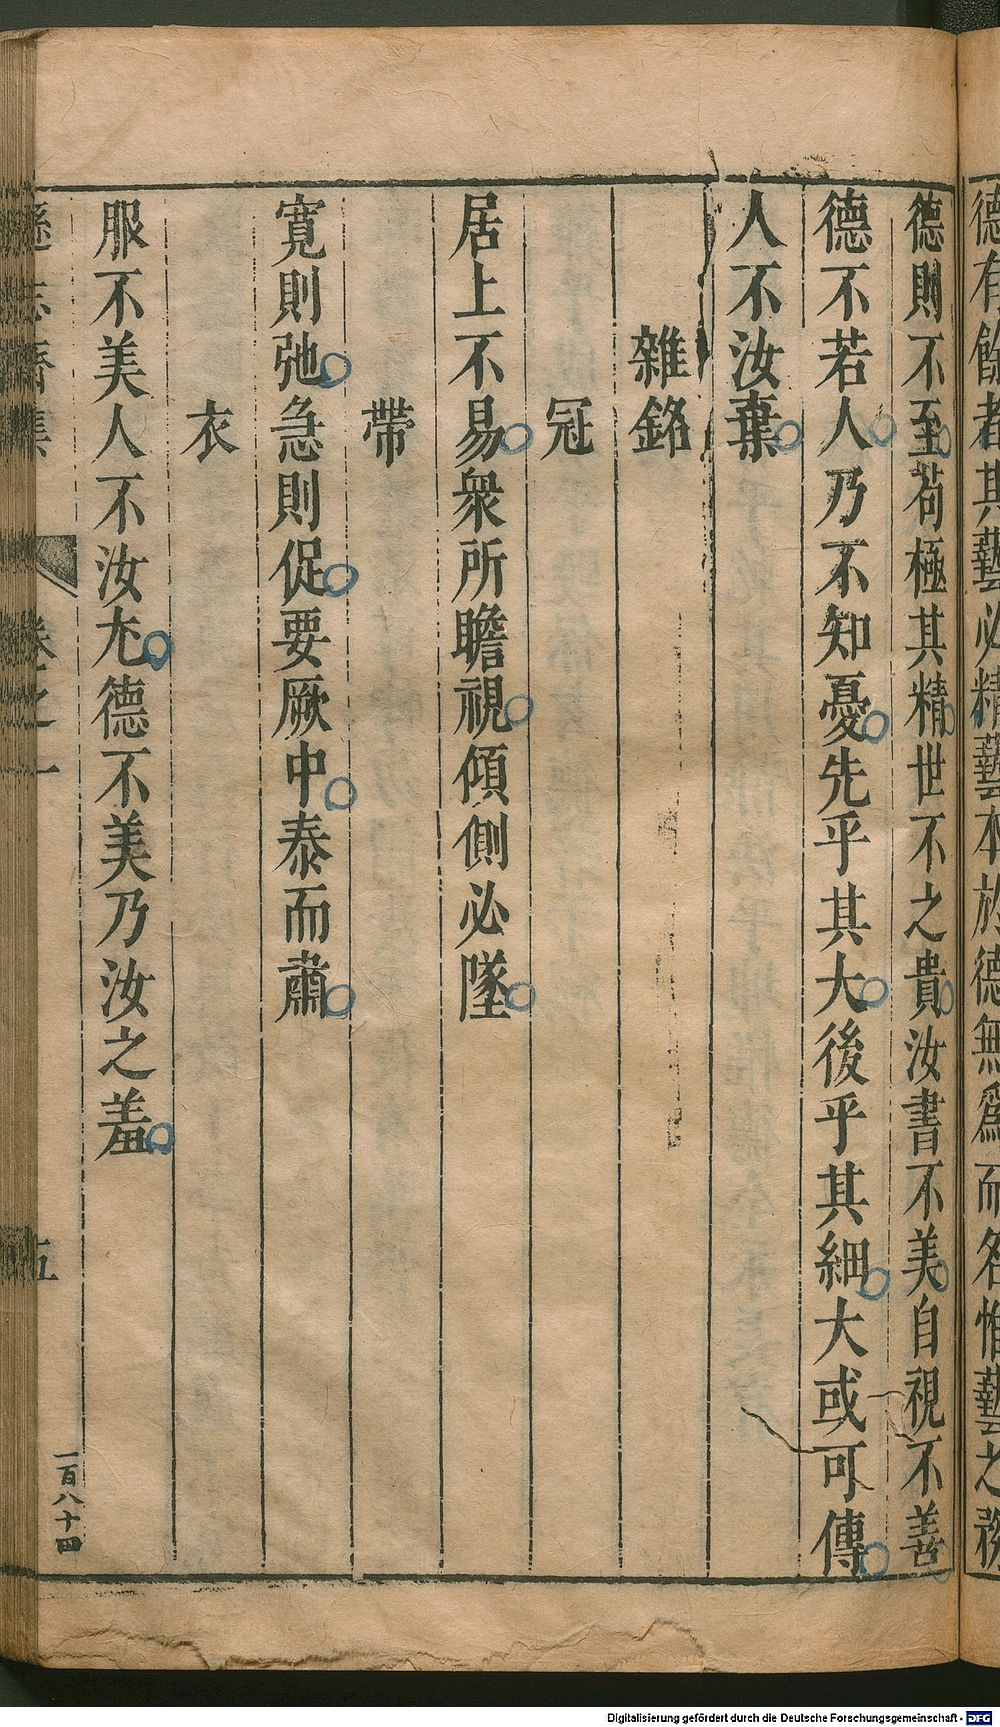 德有餘者其藝必精藝本於德無爲而名惟藝之務
德則不至苟極其精世不之貴汝書不美自視不善
德不若人乃不知憂先乎其大後乎其細大或可傳
人不汝棄
雜銘
冠
居上不易衆所瞻視傾側必墜
帶
寬則弛急則促要厥中泰而肅
衣
服不美人不汝尤德不美乃汝之羞
遜志齋集 卷之一 五
一百八十四
Digitalisierung gefördert durch die Deutsche Forschungsgemeinschaft - DFG